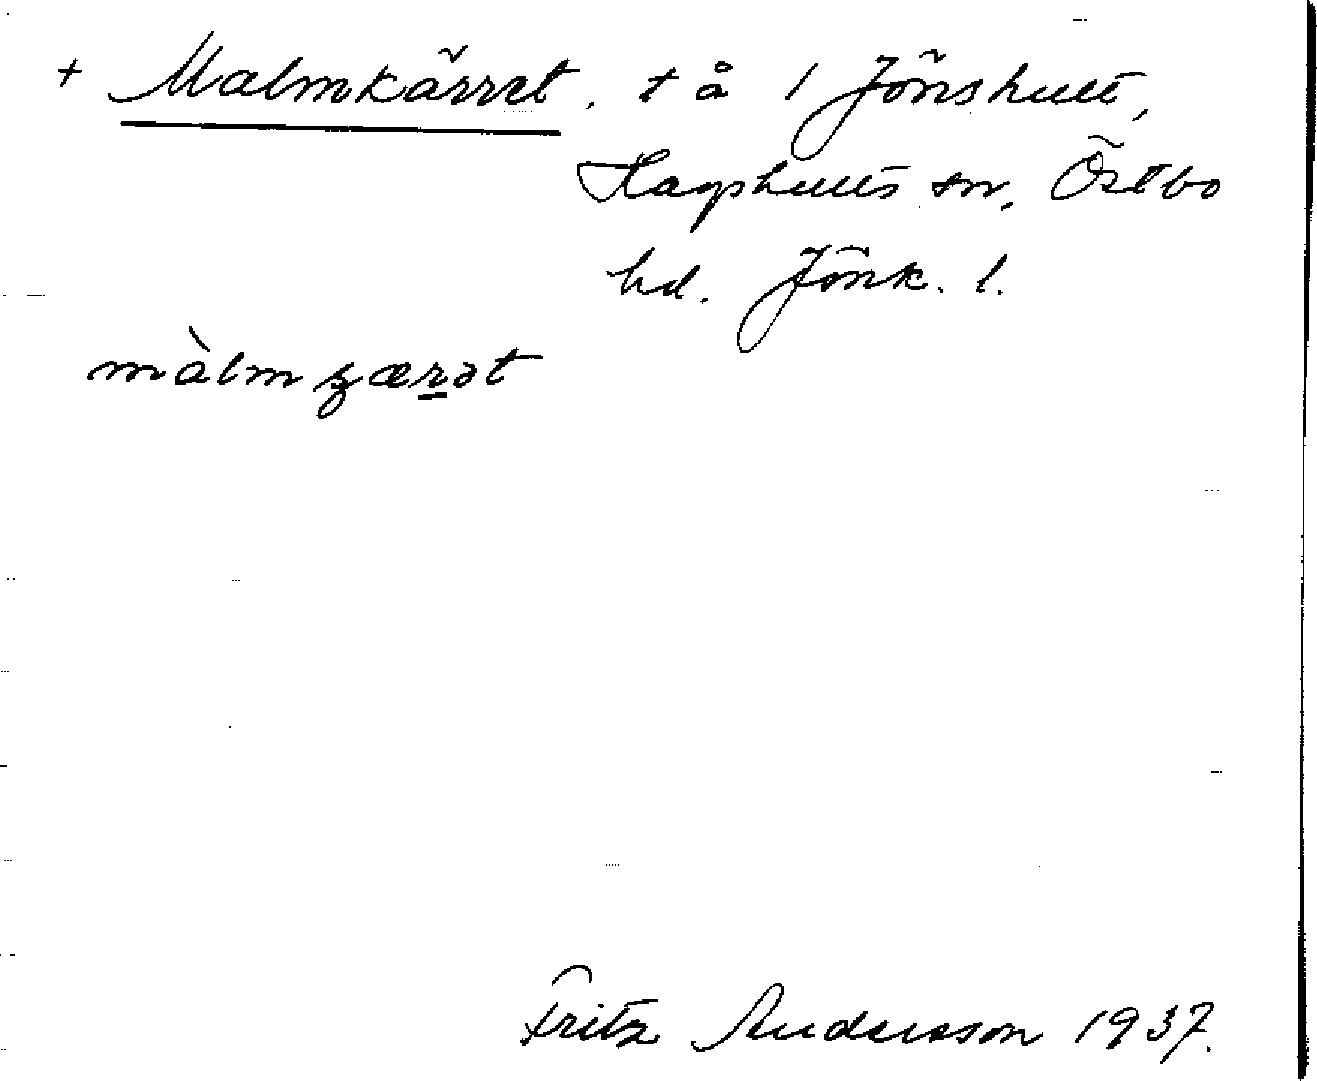 + Malmkärret. t å 1 Jönshult,
Hagshults sn, Östbo
hd. Jönk. l.
màlmʓærət
Fritz Andersson 1937.